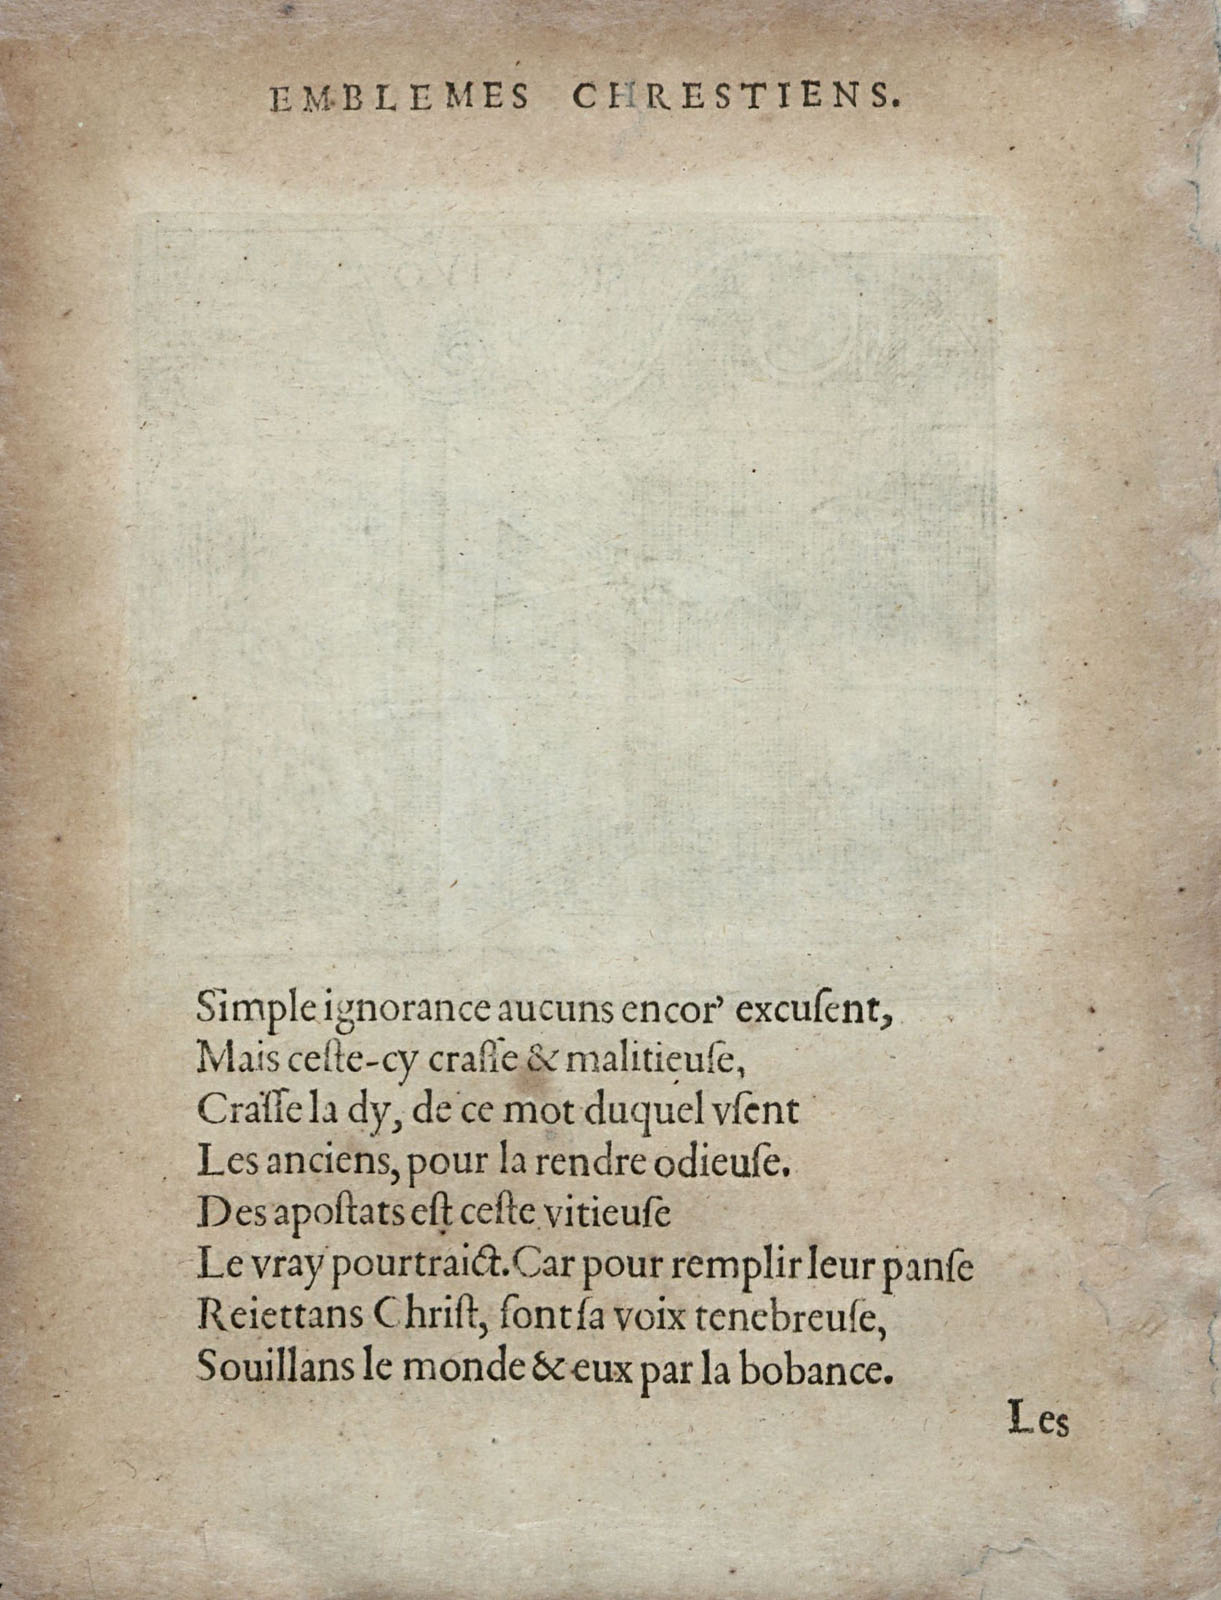 EMBLEMES CHRESTIENS.
Simple ignorance aucuns encor’ excuſent,
Mais ceſte-cy craſſe & malitieuſe,
Craſſe la dy, de ce mot duquel vſent
Les anciens, pour la rendre odieuſe.
Des apoſtats eſt ceſte vitieuſe
Le vray pourtraict. Car pour remplir leur panſe
Reiettans Chriſt, font ſa voix tenebreuſe,
Souillans le monde & eux par la bobance.
Les